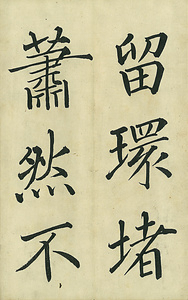 留環堵
蕭然不